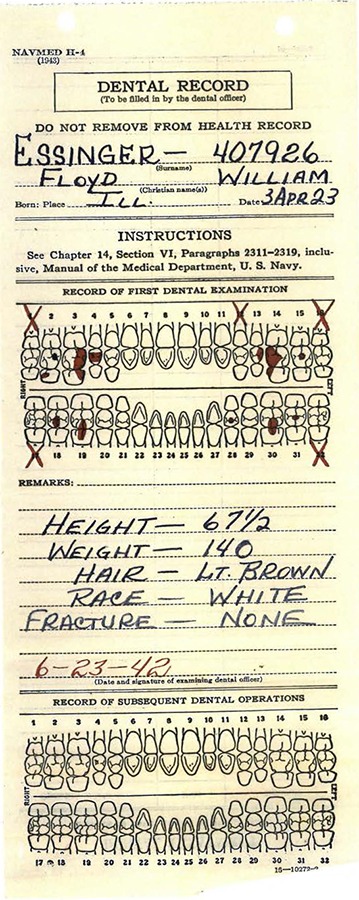 NAVMED H-4
(1943)
DENTAL RECORD
(To be filled in by the dental officer)
DO NOT REMOVE FROM HEALTH RECORD
ESSINGER — 407926
(Surname)
FLOYD WILLIAM
(Christian name(s))
Born: Place ILL. Date 3 APR 23
INSTRUCTIONS
See Chapter 14, Section VI, Paragraphs 2311–2319, inclu-
sive, Manual of the Medical Department, U. S. Navy.
RECORD OF FIRST DENTAL EXAMINATION
2 3 4 5 6 7 8 9 10 11 13 14 15
RIGHT LEFT
18 19 20 21 22 23 24 25 26 27 28 29 30 31
REMARKS:
HEIGHT — 67 1/2
WEIGHT — 140
HAIR — LT. BROWN
RACE — WHITE
FRACTURE — NONE
6-23-42
(Date and signature of examining dental officer)
RECORD OF SUBSEQUENT DENTAL OPERATIONS
1 2 3 4 5 6 7 8 9 10 11 12 13 14 15 16
RIGHT LEFT
17 18 19 20 21 22 23 24 25 26 27 28 29 30 31 32